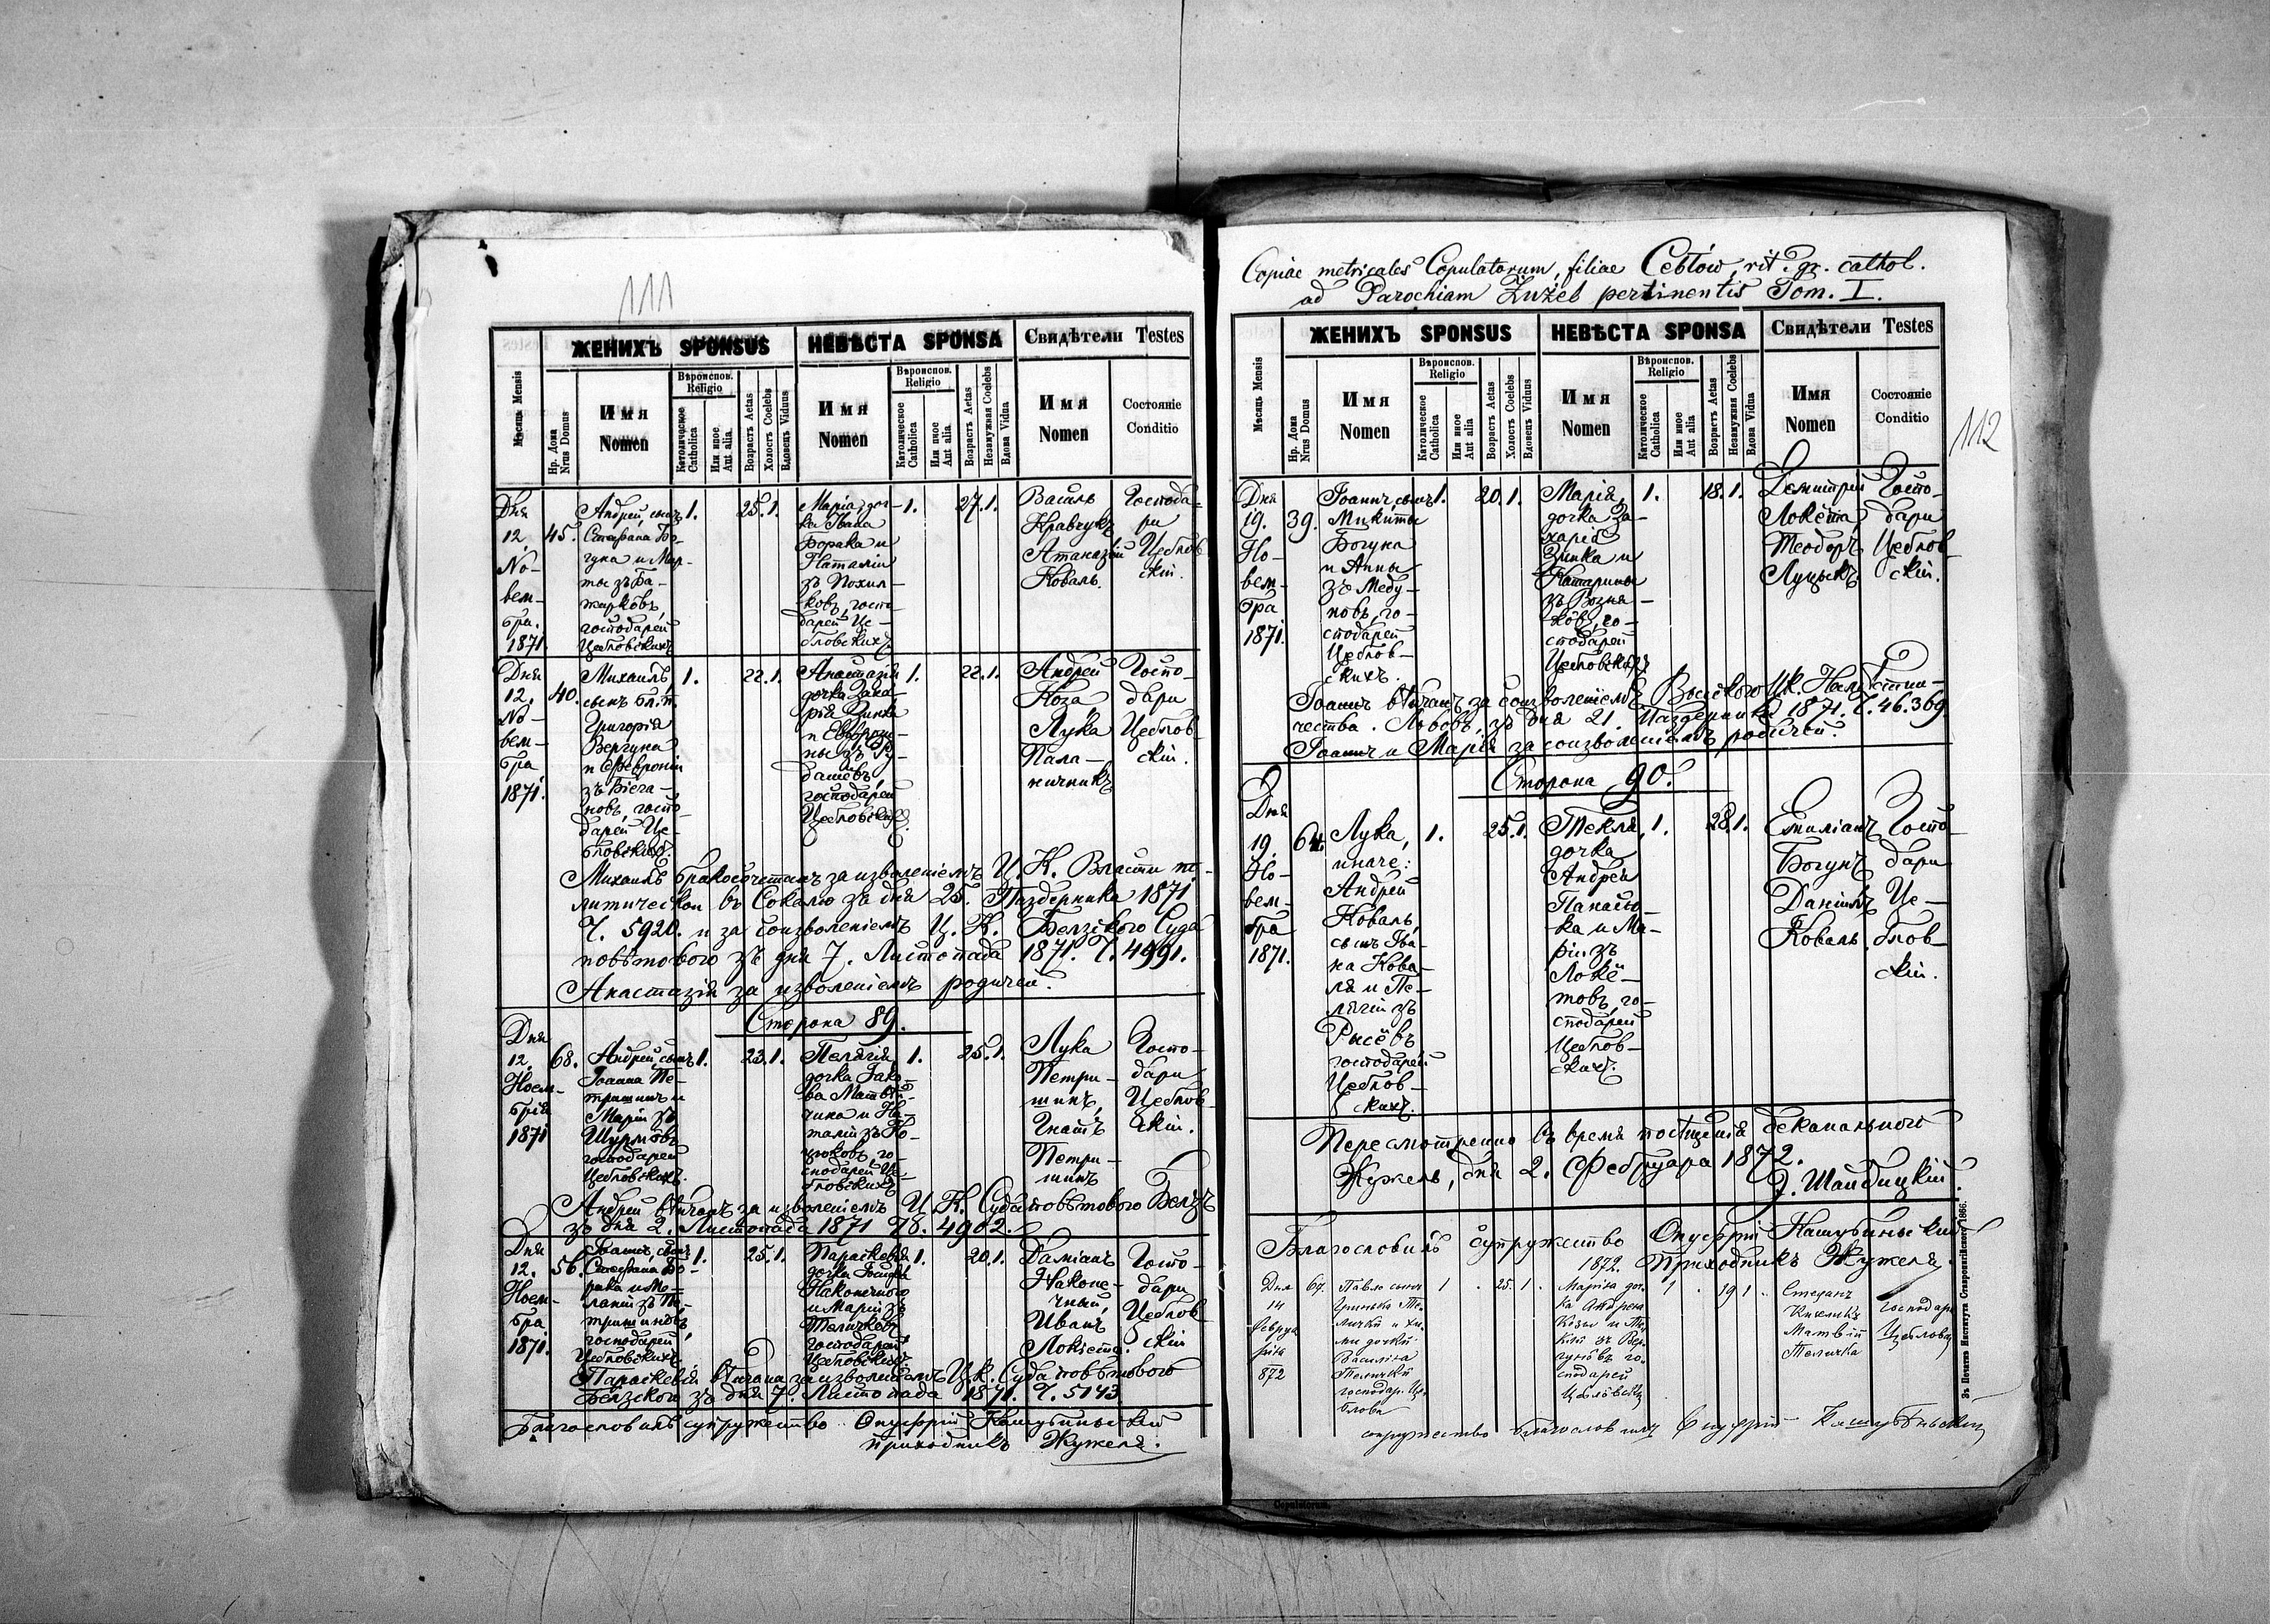 111
ЖЕНИХЪ SPONSUS
НЕВѢСТА SPONSA
Свидѣтели Testes
Мѣсяць Mensis
Нр. Дома
Nrus Domus
Имя
Nomen
Вѣроиспов.
Religio
Католическое
Catholica
Или иное
Aut alia
Возрастъ Aetas
Холостъ Coelebs
Вдовецъ Viduus
Имя
Nomen
Вѣроиспов.
Religio
Католическое
Catholica
Или иное
Aut alia
Возрастъ Aetas
Незамужная Coelebs
Вдова Vidua
Имя
Nomen
Состояніе
Conditio
Дня
12.
No-
вем-
бри.
1871
45.
Андрей, сынъ
Стефана Бо-
гуна и Мар-
ты зъ Ба-
жарковъ,
господарей
Цебловскихъ
1.
25.1.
Марія, доч-
ка Ивана
Борака и
Наталіи
зъ Похил-
ковъ, госпо-
дарей Це-
бловскихъ.
1.
27.1.
Василь
Кравчукъ
Атаназій
Коваль.
Господа-
ри
Цеблов
скіи.
Дня
12.
No-
вем-
бра
1871.
40.
Михаилъ
сынъ бл. п.
Григорія
Вергуна
и Февроніи
зъ Біега-
новъ, госпо
дарей Це-
бловскихъ.
1.
22.1.
Анастазія
дочка Заха-
рія Зинка
и Евфрози-
ны зъ Гу-
дашевъ,
господарей
Цебловскихъ.
1.
22.1.
Андрей
Коза
Лука
Пала-
ничникъ
Госпо-
дари
Цеблов-
скіи.
Михаилъ бракосочетанъ за изволеніемъ Ц. К. Власти по-
литической въ Сокалю зъ дня 25. Паздерника 1871
Ч. 5920. и за соизволеніемъ Ц. К. Белзского Суда
повѣтового зъ дня 7. Листопада 1871. Ч. 4991.
Анастазія за изволеніемъ родичей.
Сторона 89.
Дня
12.
Ноем-
брія
1871
68.
Андрей сынъ
Іоанна Пе-
тришинъ и
Маріи зъ
Шурмовъ
господарей
Цебловскихъ.
1.
23.1.
Пелагія
дочка Іако-
ва Матвѣй-
чика и На-
таліи зъ Ко-
цюковъ, го-
сподарей Це-
бловскихъ
1.
25.1.
Лука
Петри-
шинъ,
Гнатъ
Петри-
шинъ
Госпо-
дари
Цеблов
скіи.
Андрей вѣнчанъ за изволеніемъ Ц. К. Суда повѣтового Белзъ
зъ дня 2. Листопада 1871 Ч. 4902.
Дня
12.
Ноем-
бра
1871.
56.
Іоаннъ, сынъ
Стефана Бо-
рака и Ме-
ланіи зъ Пе-
тришиновъ
господарей
Цебловскихъ
1.
25.1.
Параскевія
дочка Іосифа
Наконечного
и Маріи зъ
Теличковъ
господарей
Цебловскихъ.
1.
20.1.
Даміанъ
Наконе-
чный,
Иванъ
Локіета.
Госпо-
дари
Цеблов
скіи
Параскевія вѣнчана за изволеніемъ Ц. К. Суда повѣтового
Белзского зъ дня 7. Листопада 1871. Ч. 5143
Благословилъ супружество Онуфрій Кашубиньскій
приходникъ Жужеля.
Copiae metricales Copulatorum, filiae Cebłów, rit. gr. cathol.
ad Parochiam Żużel pertinentis Tom. I.
112
ЖЕНИХЪ SPONSUS
НЕВѢСТА SPONSA
Свидѣтели Testes
Мѣсяць Mensis
Нр. Дома
Nrus Domus
Имя
Nomen
Вѣроиспов.
Religio
Католическое
Catholica
Или иное
Aut alia
Возрастъ Aetas
Холостъ Coelebs
Вдовецъ Viduus
Имя
Nomen
Вѣроиспов.
Religio
Католическое
Catholica
Или иное
Aut alia
Возрастъ Aetas
Незамужная Coelebs
Вдова Vidua
Имя
Nomen
Состояніе
Conditio
Дня
19.
Но-
вем-
бра
1871.
39.
Іоаннъ, сынъ
Микиты
Богуна
и Анны
зъ Меду-
новъ, го-
сподарей
Цеблов-
скихъ.
1.
20.1.
Марія,
дочка За-
харіа
Зинка и
Катарины
зъ Возня-
ковъ, го-
сподарей
Цебловскихъ
1.
18.1.
Демитрей
Локета,
Теодоръ
Луцыкъ
Госпо-
дари
Цеблов
скіи.
Іоаннъ вѣнчанъ за соизволеніемъ Высокого Ц.К. Намѣстни-
чества. Львовъ, зъ дня 21. Паздерника 1871. Ч. 46.369
Іоаннъ и Марія за соизволеніемъ родичей.
Сторона 90.
Дня
19.
Но-
вем-
бра
1871.
64.
Лука,
иначе:
Андрей
Коваль,
сынъ Ива-
на Кова-
ля и Пе-
лагіи зъ
Рисёвъ
господарей
Цеблов-
скихъ.
1.
25.1.
Текля,
дочка
Андрея
Панасю-
ка и Ма-
ріи зъ
Локё-
товъ, го-
сподарей
Цеблов-
скихъ.
1.
28.1.
Емиліанъ
Богунъ
Даніилъ
Коваль
Госпо-
дари
Це-
блов-
скіи.
Пересмотренно въ время посѣщенія деканального
Жужель, дня 2. Фебруара 1872.
Благословилъ супружество Онуфрій Кашубиньскій
1872. Приходникъ Жужеля.
Дня
14
Февруа
рія
872
Павло сынъ
Гринька Те-
Василіка
Теличкы
господар. Це-
блова
1
25.1
Марina доч-
ка Андрея
Козы и
зъ Вер-
гунôвъ го-
сподарей
1
19 1
Стефанъ
Матвій
Теличка
Господари
супружество благословилъ Онуфрій Кашубиньскій
Зъ Печатнѣ Института Ставропигійского 1866.
Copulatorum.